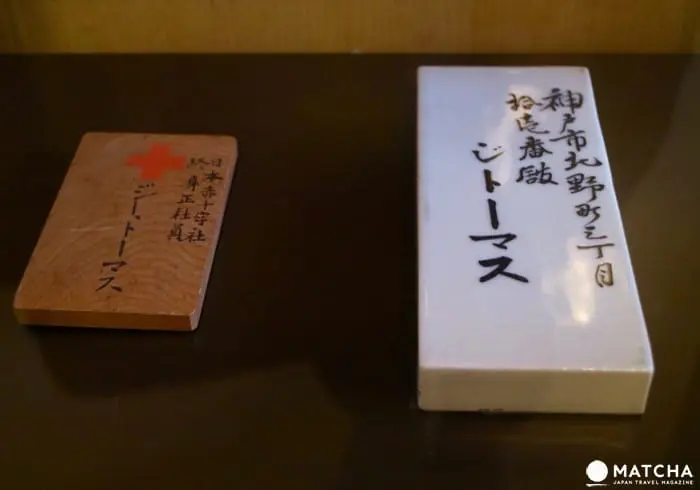 日本赤十字社
終身正社員
ジー、トーマス
神戸市北野町三丁目
拾壱番邸
ジトーマス
MATCHA
JAPAN TRAVEL MAGAZINE